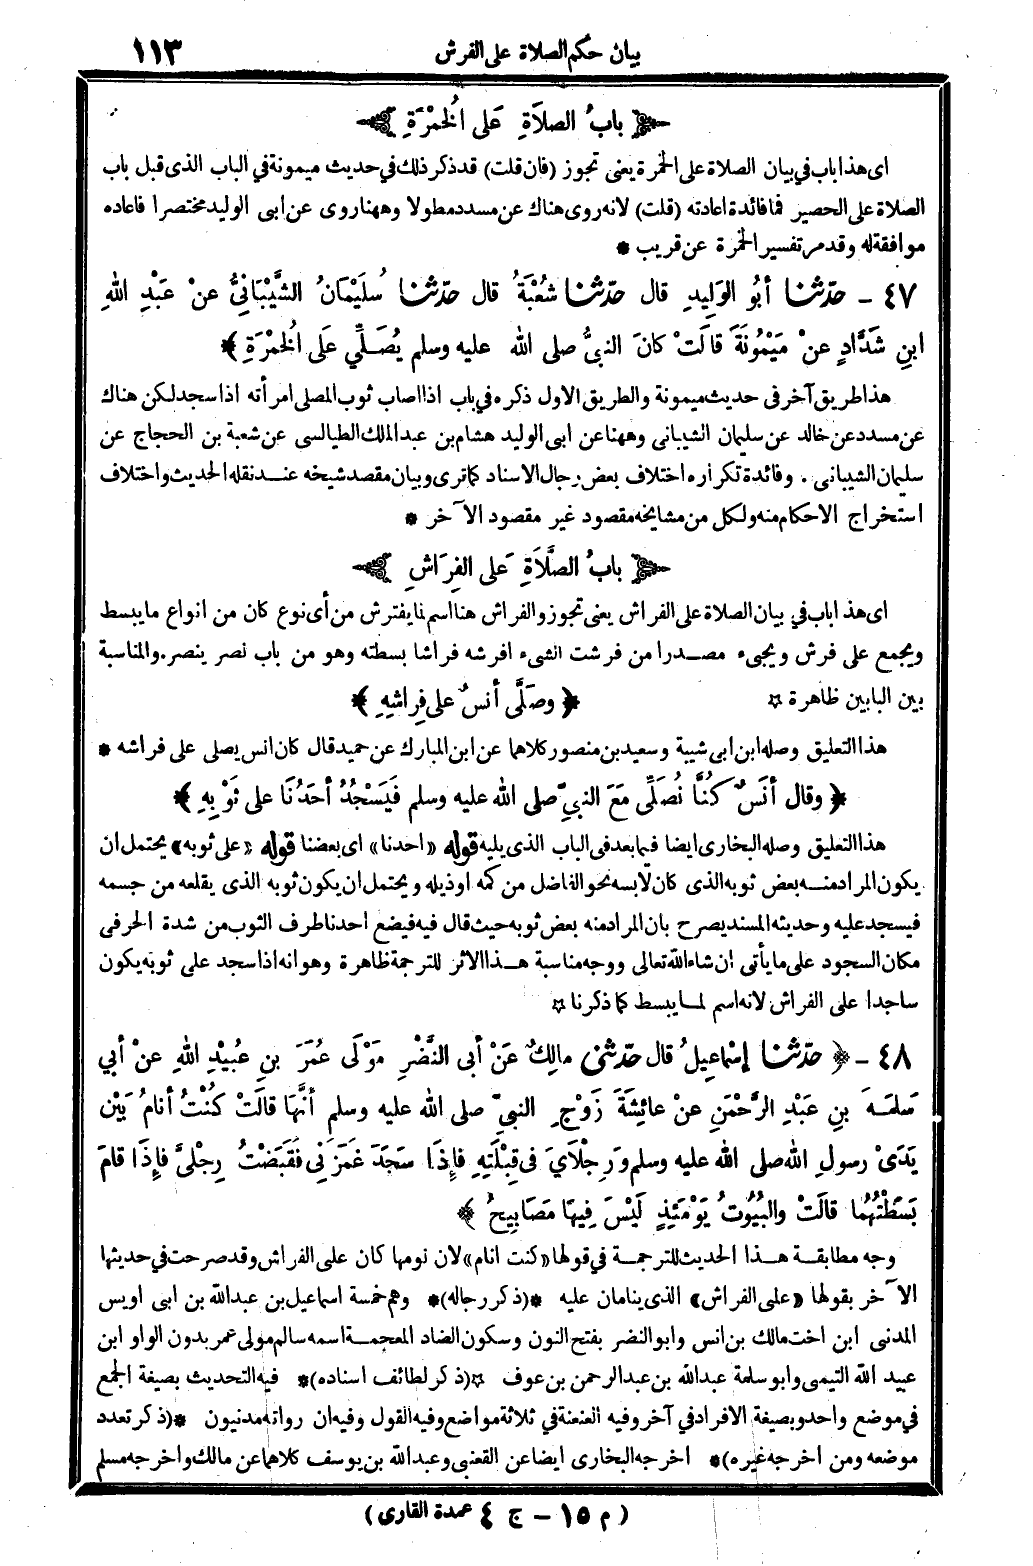 بيان حكم الصلاة على الفرش ١١٣
﴿ بابُ الصلاَةِ عَلى الخُمْرَةِ ﴾
اى هذا باب فى بيان الصلاة على الخمرة يعنى تجوز (فان قلت) قد ذكر ذلك فى حديث ميمونة فى الباب الذى قبل باب
الصلاة على الحصير فما فائدة اعادته (قلت) لانه روى هناك عن مسدد مطولا وههنا روى عن ابى الوليد مختصرا فاعاده
موافقة له وقد مر تفسير الخمرة عن قريب *
٤٧ - حدّثنا أبُو الوَلِيدِ قال حدّثنا شُعْبَةُ قال حدّثنا سُلَيْمَانُ الشَّيْبَانِيُّ عنْ عَبْدِ اللهِ
ابنِ شَدَّادٍ عنْ مَيْمُونَةَ قالَتْ كانَ النبيُّ صلى الله عليه وسلم يُصَلِّي عَلَى الخُمْرَةِ ﴾
هذا طريق آخر فى حديث ميمونة والطريق الاول ذكره فى باب اذا اصاب ثوب المصلى امرأته اذا سجد لكن هناك
عن مسدد عن خالد عن سليمان الشيبانى وههنا عن ابى الوليد هشام بن عبد الملك الطيالسى عن شعبة بن الحجاج عن
سليمان الشيبانى . وفائدة تكراره اختلاف بعض رجال الاسناد كما ترى وبيان مقصد شيخه عند نقله الحديث واختلاف
استخراج الاحكام منه ولكل من مشايخه مقصود غير مقصود الآخر *
﴿ بابُ الصَّلاَةِ عَلى الفِرَاشِ ﴾
اى هذا باب فى بيان الصلاة على الفراش يعنى تجوز والفراش هنا اسم لما يفترش من أى نوع كان من انواع ما يبسط
ويجمع على فرش ويجىء مصدرا من فرشت الشىء افرشه فراشا بسطته وهو من باب نصر ينصر. والمناسبة
بين البابين ظاهرة ☆ ﴿ وصَلَّى أنسٌ على فِراشِهِ ﴾
هذا التعليق وصله ابن ابى شيبة وسعيد بن منصور كلاهما عن ابن المبارك عن حميد قال كان انس يصلى على فراشه *
﴿ وقال أنَسٌ كُنَّا نُصَلِّى مَعَ النبيِّ صلى الله عليه وسلم فَيَسْجُدُ أحَدُنَا على ثَوْبِهِ ﴾
هذا التعليق وصله البخارى ايضا فيما بعد فى الباب الذى يليه قوله «احدنا» اى بعضنا قوله «على ثوبه» يحتمل ان
يكون المراد منه بعض ثوبه الذى كان لابسه نحو الفاضل من كمه او ذيله ويحتمل ان يكون ثوبه الذى يقلعه من جسمه
فيسجد عليه وحديثه المسند يصرح بان المراد منه بعض ثوبه حيث قال فيه فيضع احدنا طرف الثوب من شدة الحر فى
مكان السجود على ما يأتى ان شاء الله تعالى ووجه مناسبة هذا الاثر للترجمة ظاهرة وهو انه اذا سجد على ثوبه يكون
ساجدا على الفراش لانه اسم لما يبسط كما ذكرنا ☆
٤٨ - ﴿ حدّثنا إسْماعِيلُ قال حدّثنى مالِكٌ عَنْ أبى النَّضْرِ مَوْلَى عُمَرَ بنِ عُبيْدِ اللهِ عنْ أبي
سَلَمَةَ بنِ عَبْدِ الرَّحْمَنِ عنْ عائِشَةَ زَوْجِ النبيِّ صلى الله عليه وسلم أنَّهَا قالَتْ كُنْتُ أنامُ بَيْنَ
يَدَىْ رسولِ اللهِ صلى الله عليه وسلم ورِجْلَايَ فى قِبْلَتِهِ فإذَا سَجَدَ غَمَزَنِى فقَبَضْتُ رِجْلَىَّ فإذَا قامَ
بَسَطْتُهُما قالَتْ والبُيُوتُ يَوْمَئِذٍ لَيْسَ فِيهَا مَصَابِيحُ ﴾
وجه مطابقة هذا الحديث للترجمة فى قولها «كنت انام» لان نومها كان على الفراش وقد صرحت فى حديثها
الآخر بقولها «على الفراش» الذى ينامان عليه *(ذكر رجاله)* وهم خمسة اسماعيل بن عبدالله بن ابى اويس
المدنى ابن اخت مالك بن انس وابو النضر بفتح النون وسكون الضاد المعجمة اسمه سالم مولى عمر بدون الواو ابن
عبيد الله التيمى وابو سلمة عبدالله بن عبدالرحمن بن عوف ☆(ذكر لطائف اسناده)* فيه التحديث بصيغة الجمع
فى موضع واحد وبصيغة الافراد فى آخر وفيه العنعنة فى ثلاثة مواضع وفيه القول وفيه ان رواته مدنيون *(ذكر تعدد
موضعه ومن اخرجه غيره)* اخرجه البخارى ايضا عن القعنبى وعبدالله بن يوسف كلاهما عن مالك واخرجه مسلم
(م ١٥ - ج ٤ عمدة القارى)